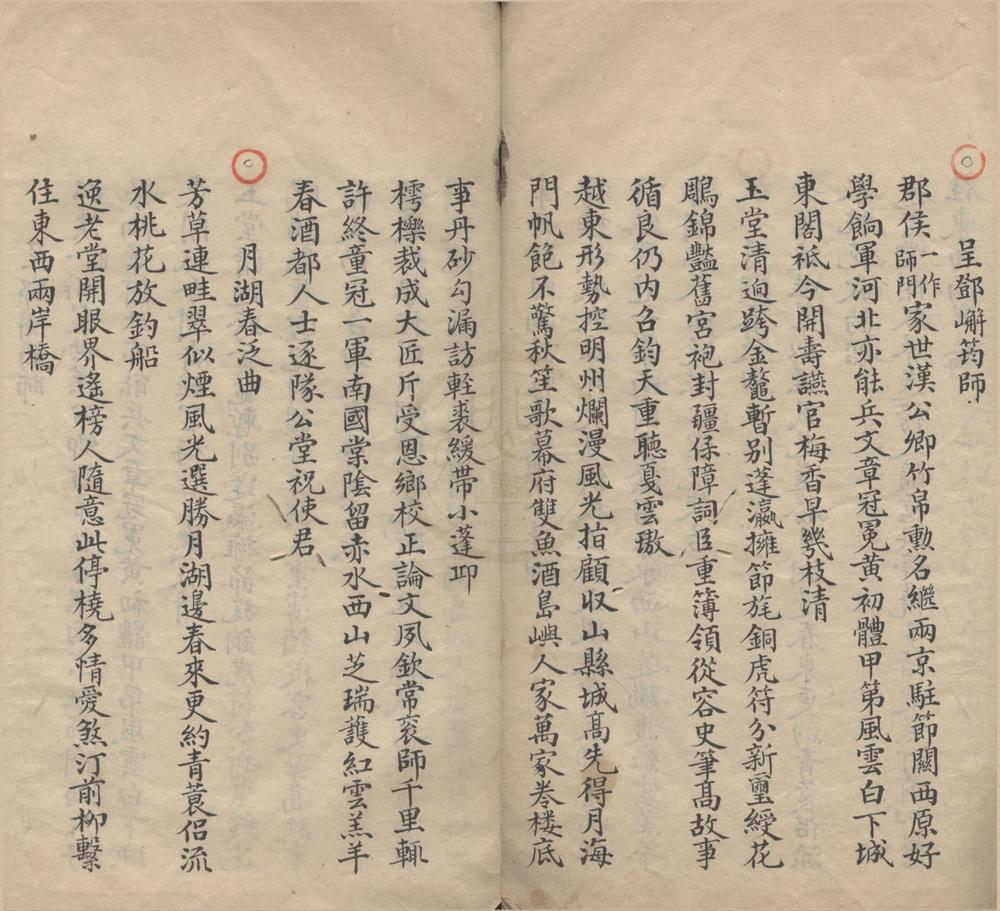 呈鄧嶰筠師
郡侯一作師門家世漢公卿竹帛勳名繼兩京駐節關西原好
學餉軍河北亦能兵文章冠冕黃初體甲第風雲白下城
東閣祗今開壽讌官梅香早幾枝清
玉堂清迥跨金鼇暫别蓬瀛擁節旄銅虎符分新璽綬花
鵰錦豔舊宮袍封疆保障詞臣重簿領從容史筆髙故事
循良仍内召鈞天重聽戛雲璈
越東形勢控明州爛漫風光指顧収山縣城髙先得月海
門帆飽不驚秋笙歌幕府雙魚酒島嶼人家萬家桊楼底
事丹砂勾漏訪輕裘緩帶小蓬邱
樗櫟裁成大匠斤受恩鄉校正論文夙欽常衮師千里輒
許終童冠一軍南國棠陰留赤水西山芝瑞護紅雲羔羊
春酒都人士逐隊公堂祝使君
月湖春泛曲
芳草連畦翠似煙風光選勝月湖邊春來更約青蓑侶流
水桃花放釣船
逸老堂開眼界遙榜人隨意此停橈多情愛煞汀前柳繫
住東西兩岸橋